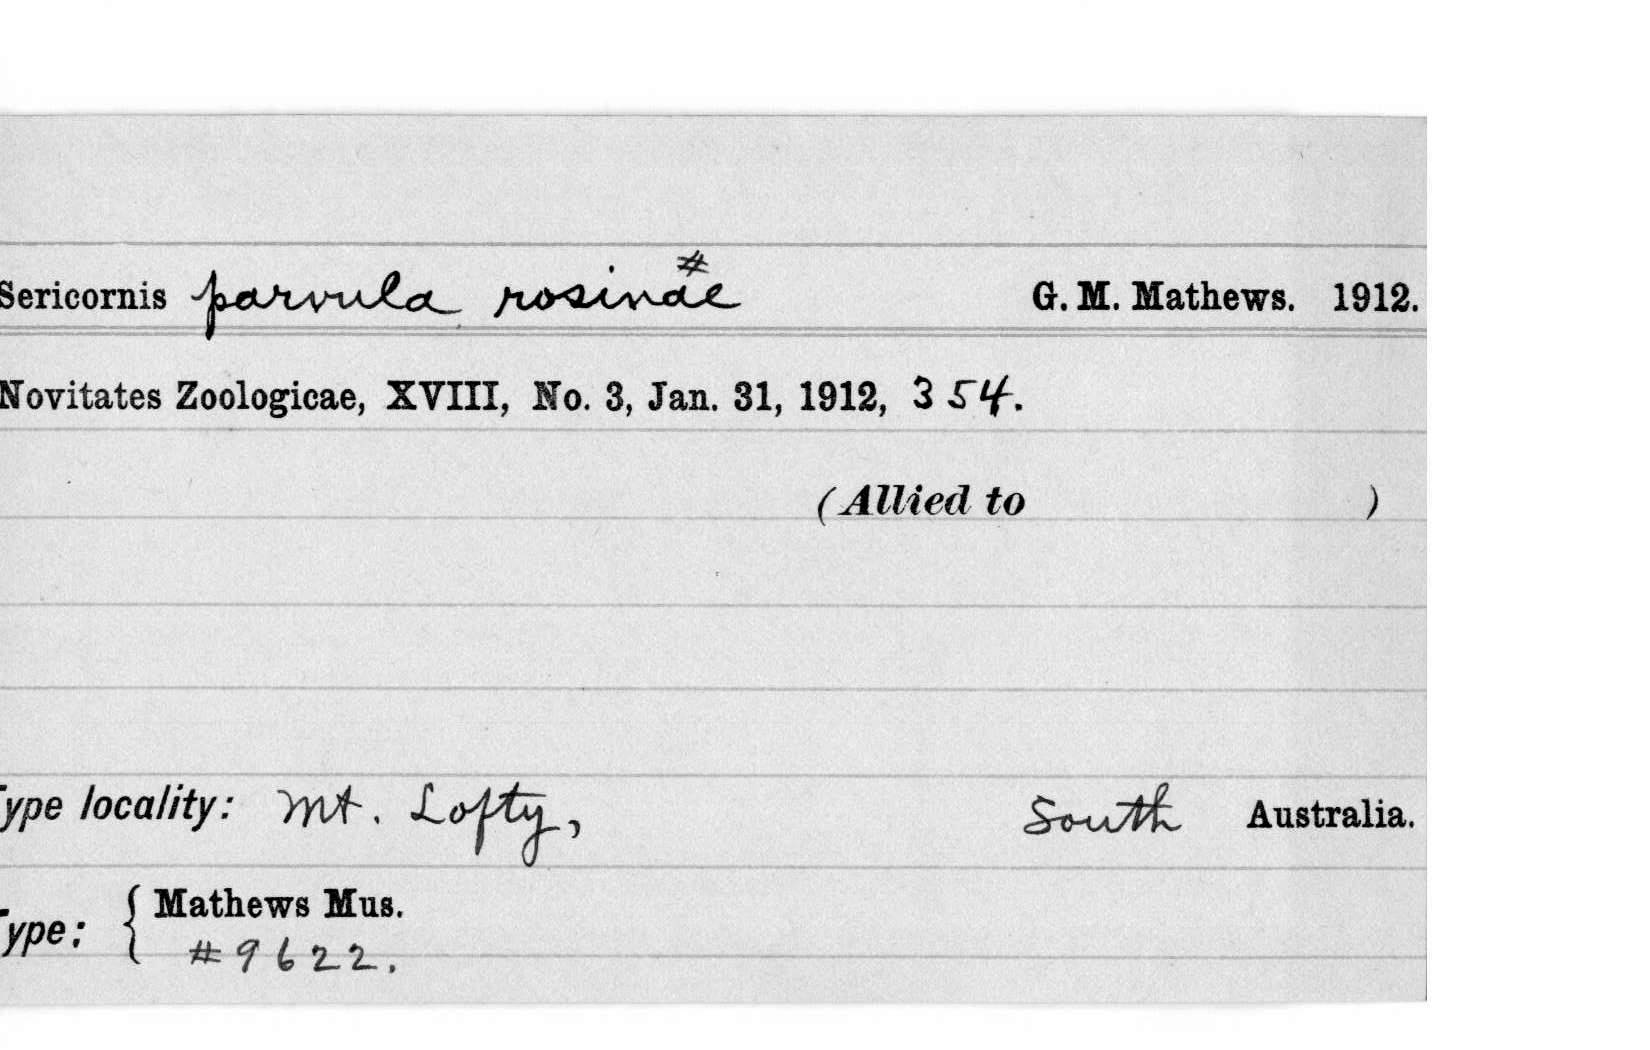 Sericornis parvula rosinae # G. M. Mathews. 1912.
Novitates Zoologicae, XVIII, No. 3, Jan. 31, 1912, 354.
(Allied to )
Type locality: Mt. Lofty, South Australia.
Type: { Mathews Mus.
#9622.